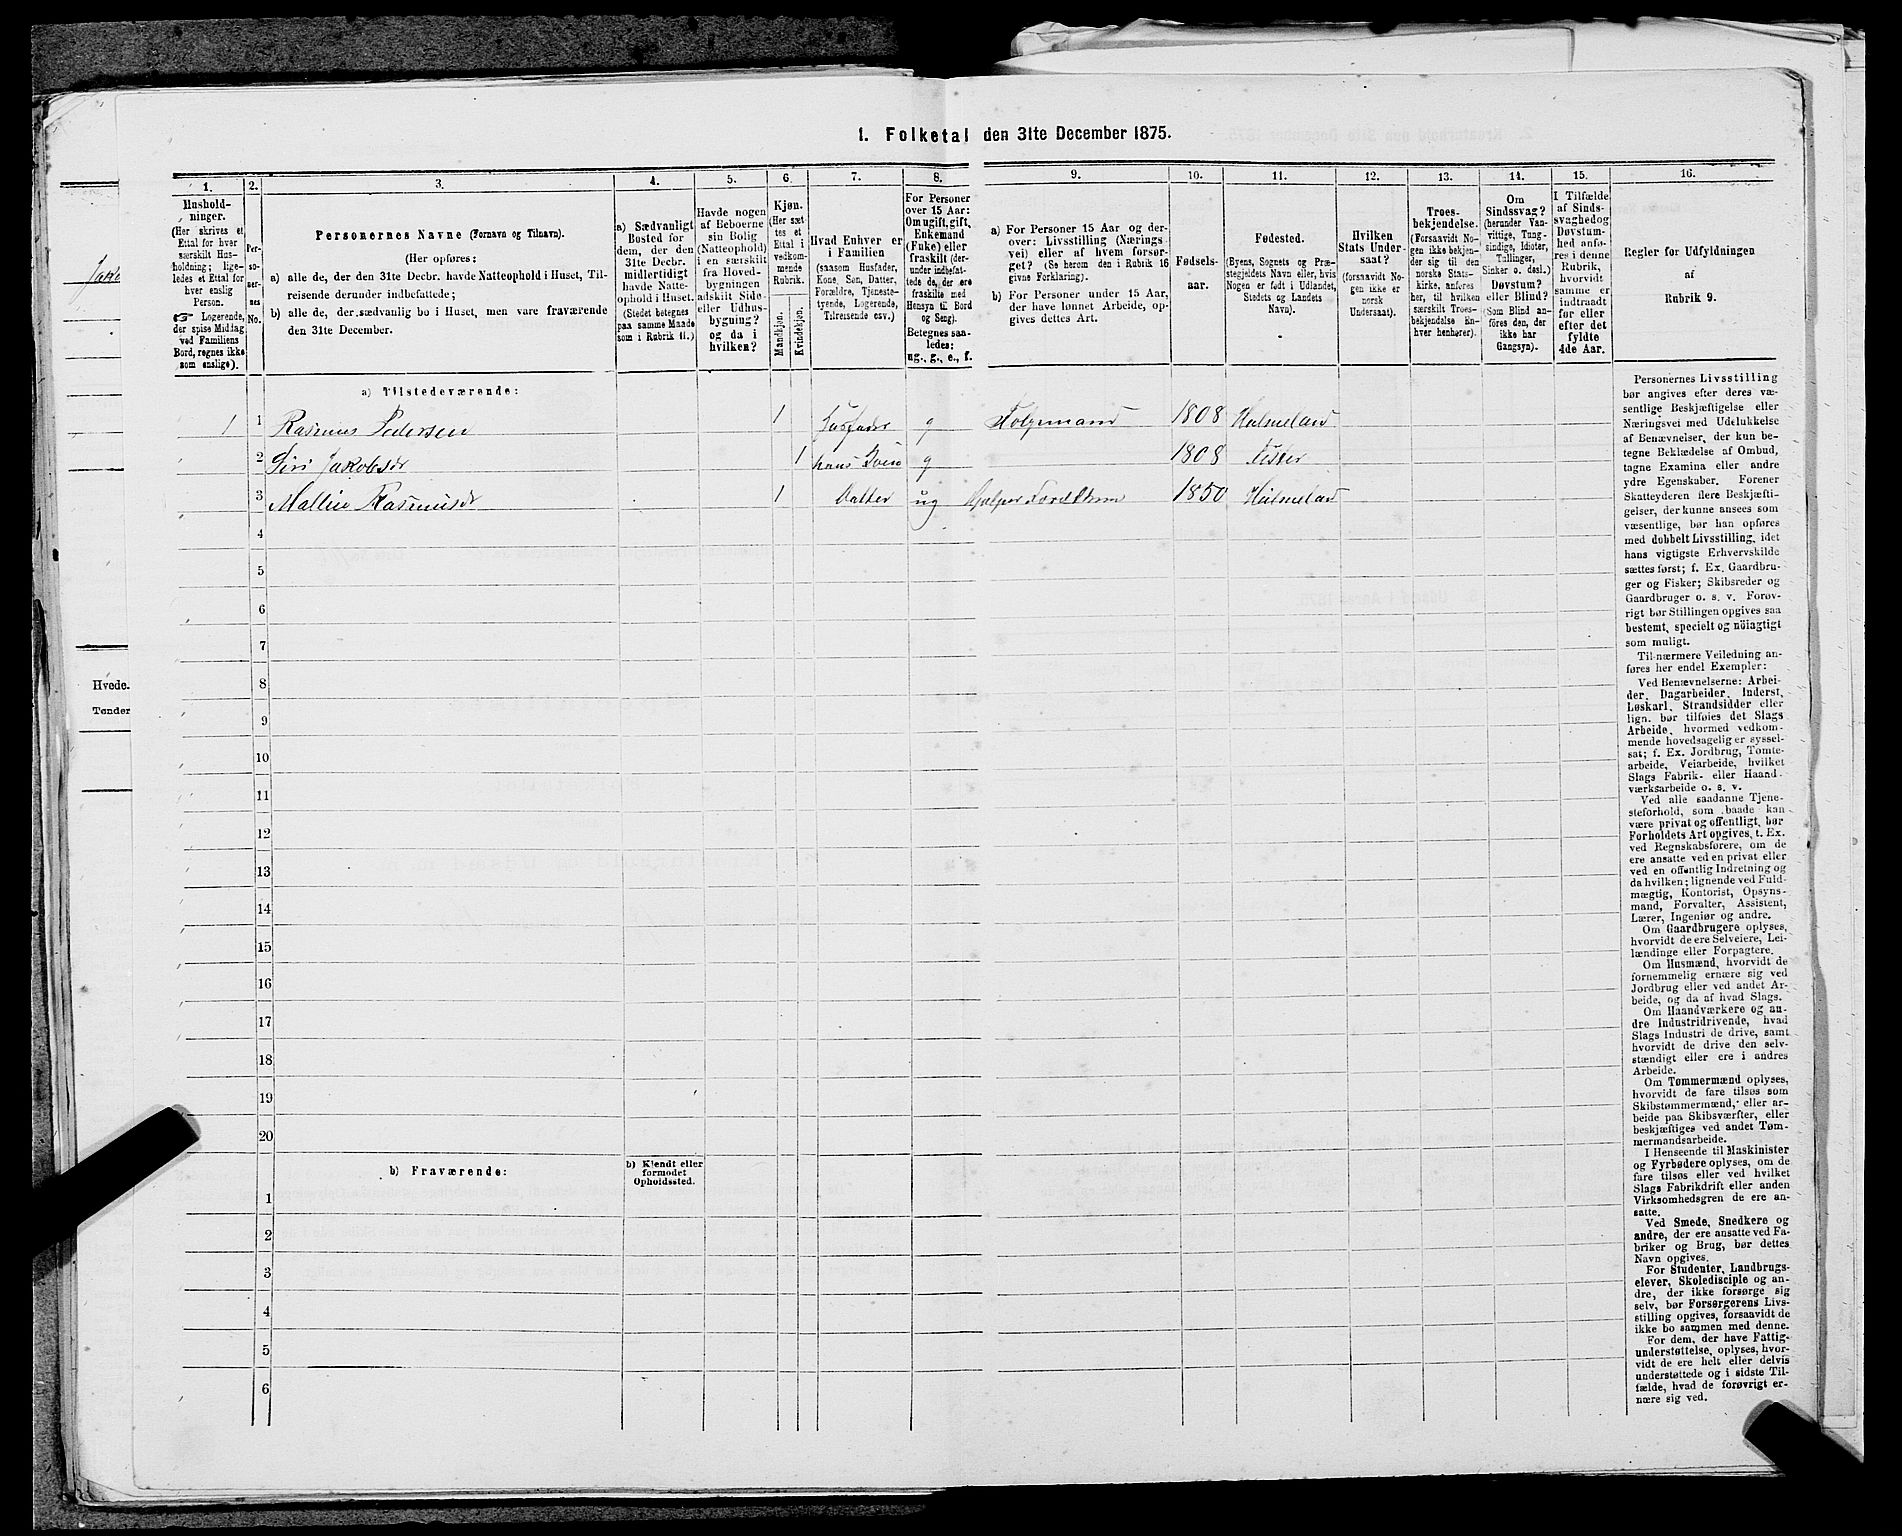 1. Folketal den 31te December 1875.
1. 2. 3. 4. 5. 6. 7. 8. 9. 10. 11. 12. 13. 14. 15. 16.
Hushold-
ninger.
(Her skrives et
Ettal for hver
særskilt Hus-
holdning; lige-
ledes et Ettal for
hver enslig
Person.
☞ Logerende,
der spise Middag
ved Familiens
Bord, regnes ikke
som enslige).
Per-
so-
ner-
nes
No.
Personernes Navne (Fornavn og Tilnavn).
(Her opføres:
a) alle de, der den 31te Decbr. havde Natteophold i Huset, Til-
reisende derunder indbefattede;
b) alle de, der sædvanlig bo i Huset, men vare fraværende
den 31te December.
a) Sædvanligt
Bosted for
dem, der den
31te Decbr.
midlertidigt
havde Natte-
ophold i Huset.
(Stedet betegnes
paa samme Maade
som i Rubrik 11.)
Havde nogen
af Beboerne
sin Bolig
(Natteophold)
i en særskilt
fra Hoved-
bygningen
adskilt Side-
eller Udhus-
bygning?
og da i
hvilken?
Kjøn.
(Her sæt-
tes et
Ettal i
vedkom-
mende
Rubrik.
Mandkjøn.
Kvindekjøn.
Hvad Enhver er
i Familien
(saasom Husfader,
Kone, Søn, Datter,
Forældre, Tjeneste-
tyende, Logerende,
Tilreisende osv.)
For Personer
over 15 Aar:
Om ugift, gift,
Enkemand
(Enke) eller
fraskilt (der-
under indbefat-
tede de, der ere
fraskilte med
Hensyn til Bord
og Seng).
Betegnes saa-
ledes:
ug., g., e., f.
a) For Personer 15 Aar og der-
over: Livsstilling (Nærings-
vei) eller af hvem forsør-
get? (Se herom den i Rubrik 16
givne Forklaring).
b) For Personer under 15 Aar,
der have lønnet Arbeide, op-
gives dettes Art.
Fødsels-
aar.
Fødested.
(Byens, Sognets og Præ-
stegjeldets Navn eller, hvis
Nogen er født i Udlandet,
Stedets og Landets
Navn).
Hvilken
Stats Under-
saat?
(forsaavidt No-
gen ikke er
norsk
Undersaat).
Troes-
bekjendelse.
(Forsaavidt No-
gen ikke bekjen-
der sig til den
norske Stats-
kirke, anføres
her, til hvilken
særskilt Troes-
bekjendelse En-
hver henhører).
Om
Sindssvag?
(herunder Van-
vittige, Tung-
sindige, Idioter,
Tullinger,
Sinker o. desl.)
Døvstum?
eller Blind?
(Som Blind an-
føres den, der
ikke har
Gangsyn).
I Tilfælde
af Sinds-
svaghed og
Døvstum-
hed anfø-
res i denne
Rubrik,
hvorvidt
samme er
indtraadt
før eller
efter det
fyldte
4de Aar.
Regler for Udfyldningen
af
Rubrik 9.
a) Tilstedeværende:
1 1 Rasmus Pedersen 1 husfader g Folgemand 1808 Halmeland
2 Siri Jakobsdr 1 hans Kone g 1808 Fister
3 Malline Rasmusdr 1 Datter ug Hjelper Foreldrene 1850 Halmeland
4
5
6
7
8
9
10
11
12
13
14
15
16
17
18
19
20
b) Fraværende:
b) Kjendt eller
formodet
Opholdssted.
1
2
3
4
5
6
Personernes Livsstilling
bør angives efter deres væ-
sentlige Beskjæftigelse eller
Næringsvei med Udelukkelse
af Benævnelser, der kun be-
tegne Beklædelse af Ombud,
tagne Examina eller andre
ydre Egenskaber. Forener
Skatteyderen flere Beskjæfti-
gelser, der kunne ansees som
væsentlige, bør han opføres
med dobbelt Livsstilling, idet
hans vigtigste Erhvervskilde
sættes først; f. Ex. Gaardbru-
ger og Fisker; Skibsreder og
Gaardbruger o. s. v. Forøv-
rigt bør Stillingen opgives saa
bestemt, specielt og nöiagtigt
som muligt.
Til nærmere Veiledning an-
føres her endel Exempler:
Ved Benævnelserne: Arbei-
der, Dagarbeider, Inderst,
Løskarl, Strandsidder eller
lign. bør tilføies det Slags
Arbeide, hvormed vedkom-
mende hovedsagelig er syssel-
sat; f. Ex. Jordbrug, Tomte-
arbeide, Veiarbeide, hvilket
Slags Fabrik- eller Haand-
værksarbeide o. s. v.
Ved alle saadanne Tjene-
steforhold, som baade kan
være privat og offentligt, bør
Forholdets Art opgives, t. Ex.
ved Regnskabsførere, om de
ere ansatte ved en privat eller
ved en offentlig Indretning og
da hvilken; lignende ved Fuld-
mægtig, Kontorist, Opsyns-
mand, Forvalter, Assistent,
Lærer, Ingeniør og andre.
Om Gaardbrugere oplyses,
hvorvidt de ere Selveiere, Lei-
lændinge eller Forpagtere.
Om Husmænd, hvorvidt de
fornemmelig ernære sig ved
Jordbrug eller ved andet Ar-
beide, og da af hvad Slags.
Om Haandværkere og an-
dre Industridrivende, hvad
Slags Industri de drive, samt
hvorvidt de drive den selv-
stændigt eller ere i andres
Arbeide.
Om Tømmermænd oplyses,
hvorvidt de fare tilsøs som
Skibstømmermænd, eller ar-
beide paa Skibsværfter, eller
beskjæftiges ved andet Tøm-
mermandsarbeide.
I Henseende til Maskinister
og Fyrbødere oplyses, om de
fare tilsøs eller ved hvilket
Slags Fabrikdrift eller anden
Virksomhedsgren de ere an-
satte.
Ved Smede, Snedkere og
andre, der ere ansatte ved Fa-
briker og Brug, bør dettes
Navn opgives.
For Studenter, Landbrugs-
elever, Skoledisciple og an-
dre, der ikke forsørge sig
selv, bør Forsørgerens Livs-
stilling opgives, forsaavidt de
ikke bo sammen med denne.
For dem, der have Fattig-
understøttelse, oplyses, hvor-
vidt de ere helt eller delvis
understøttede og i sidste Til-
fælde, hvad de forøvrigt er-
nære sig ved.
Hvede.
Tønder